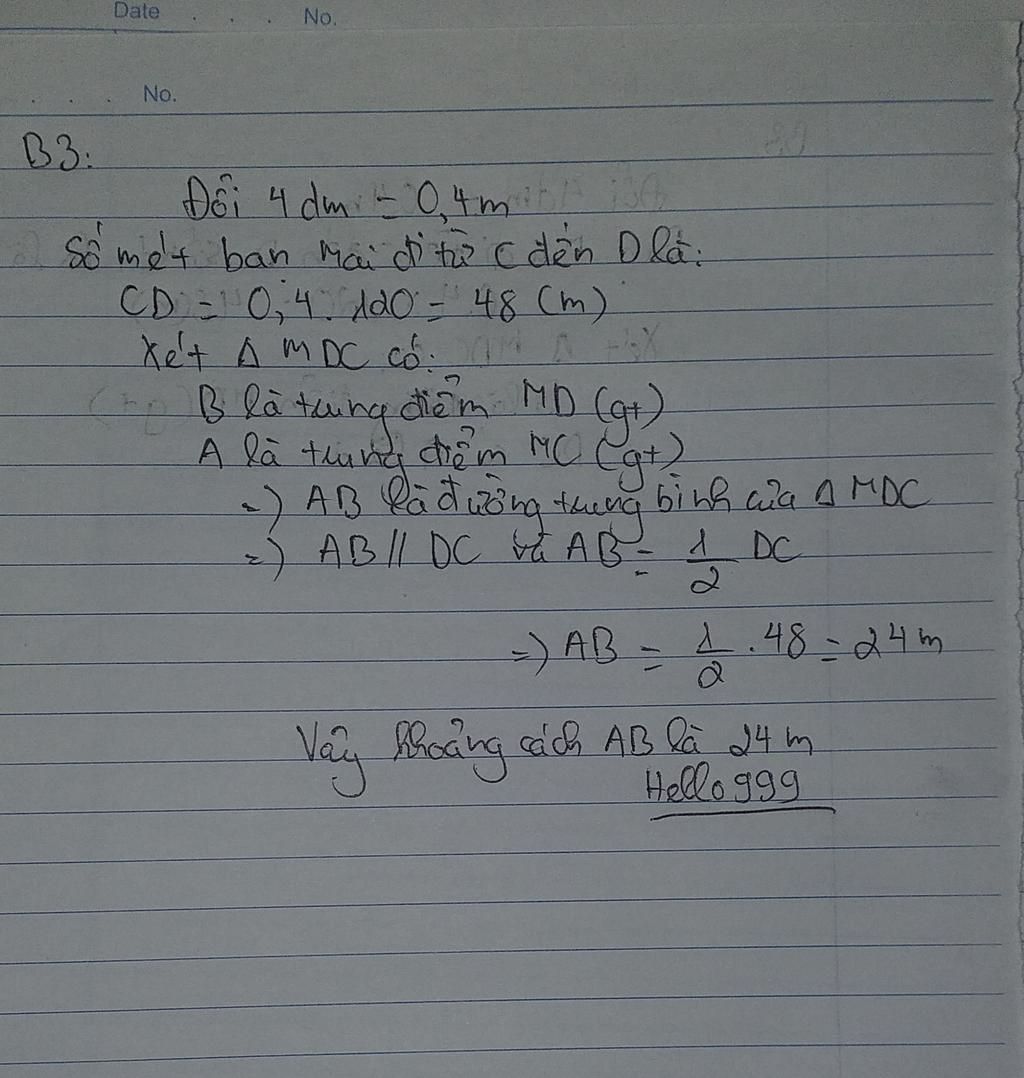 Date . . . No.
. . . No.
B3:
Đổi 4 dm = 0,4m
Số mét bạn Mai đi từ C đến D là:
CD = 0,4. 120 = 48 (m)
Xét Δ MDC có:
B là trung điểm MD (gt)
A là trung điểm MC (gt)
=) AB là đường trung bình của Δ MDC
=) AB // DC và AB = 1/2 DC
=) AB = 1/2 . 48 = 24 m
Vậy khoảng cách AB là 24 m
Hello 999